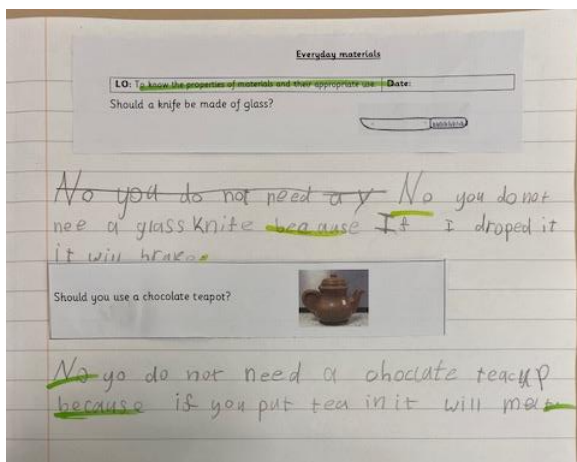 Everyday materials
LO: To know the properties of materials and their appropriate use. Date:
Should a knife be made of glass?
No you do not need a y No you do not
nee a glass knife because If I droped it
it will brake.
Should you use a chocolate teapot?
No yo do not need a choclate teacup
because if you put tea in it will melt.